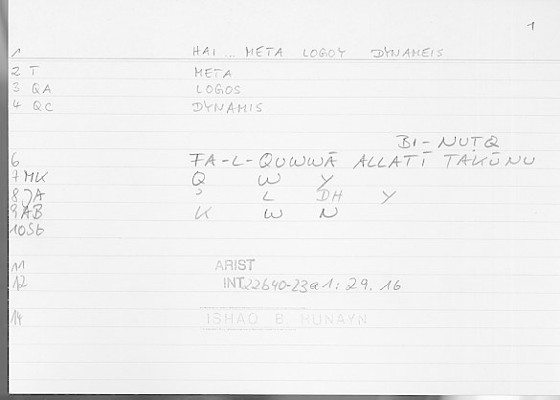 1
1 HAI ... META LOGOY DYNAMEIS
2 T META
3 QA LOGOS
4 QC DYNAMIS
BI-NUṬQ
6 FA-L-QUWWĀ ALLATĪ TAKŪNU
7 MK Q W Y
8 JA ʾ L DH Y
9 AB K W N
10 Sb
11 ARIST
12 INT 22b40-23a1: 29.16
14 ISHAQ B HUNAYN